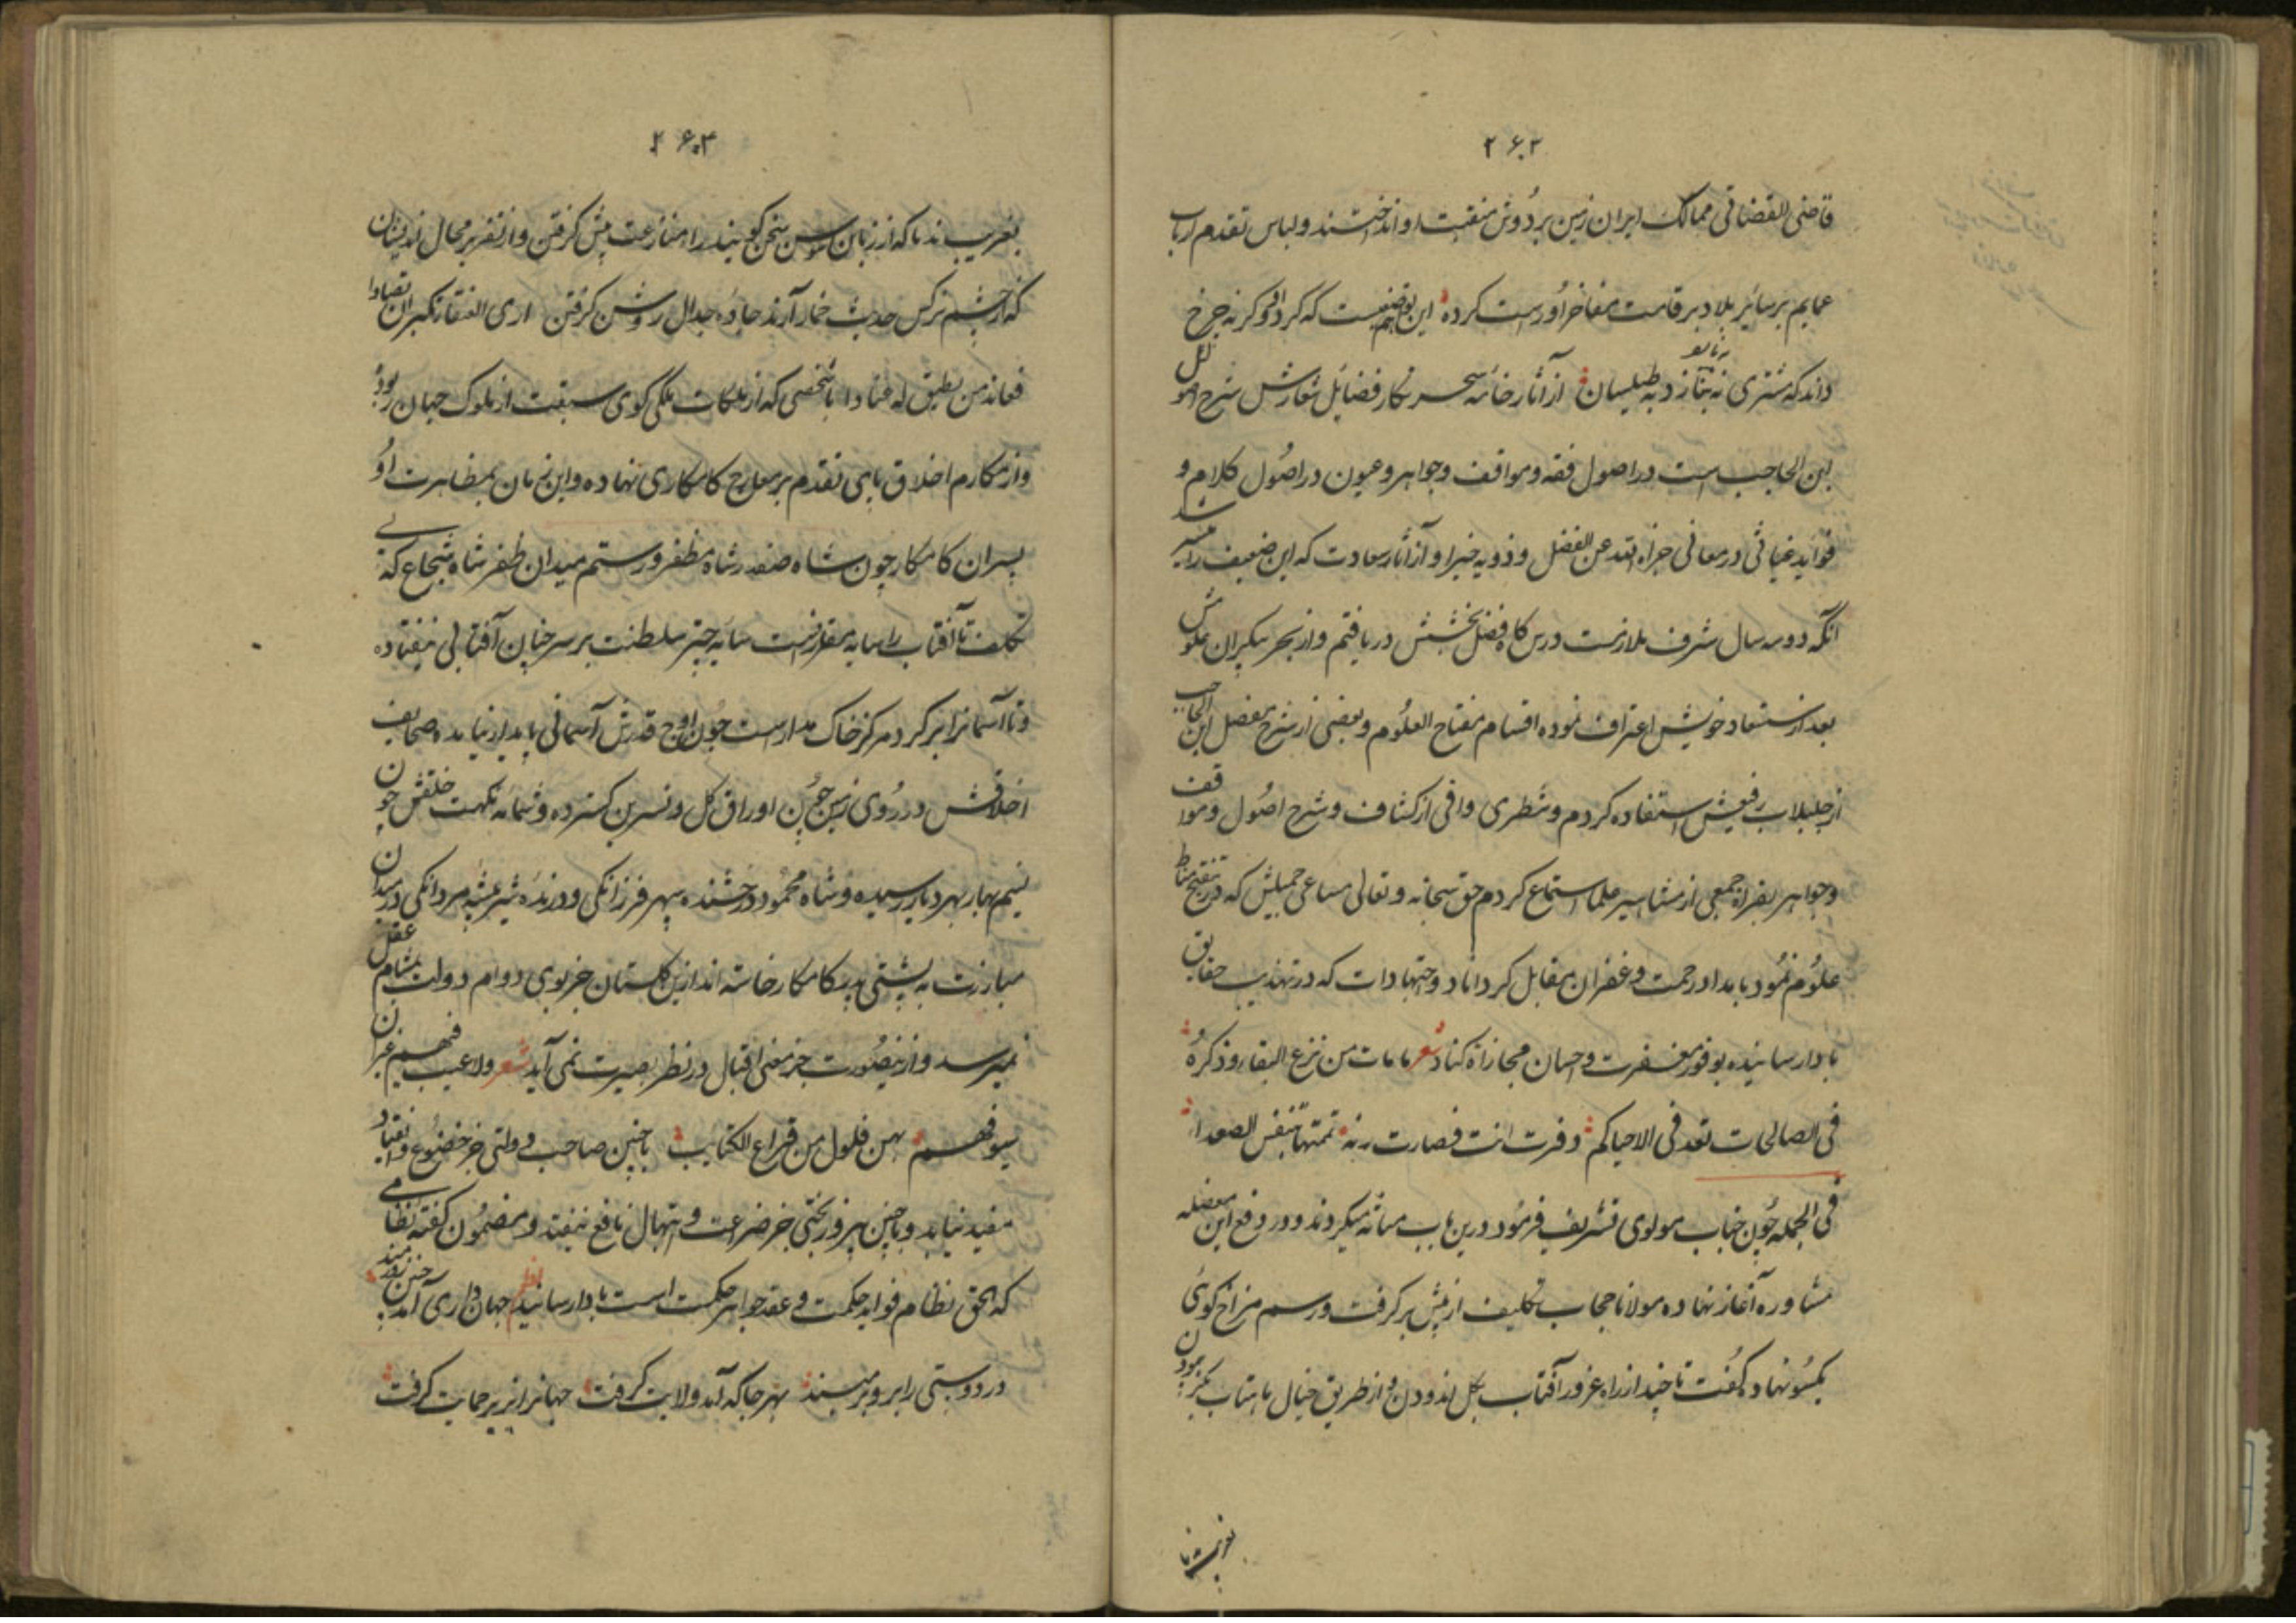 ۲۶۲
قاضی القضاتی ممالک ایران زمین بر دوش منقبت او انداختند و لباس تقدم ارباب
عمایم بر سایر بلاد بر قامت مفاخر او راست کرده این نه که گرد او گر نه چرخ
داند که مشتری به طیلسان از آثار خامه سحر نگار فضایل شعارش شرح اصول
ابن الحاجب است در اصول فقه و مواقف و جواهر و عیون در اصول کلام و
فواید غیاثی در معانی جزاه الله عن الفضل و ذویه خیرا و از آثار سعادت که این ضعیف را میسر شد
آنکه دو سه سال شرف ملازمت درس کاه فضل بخشش دریافتم و از بحر بیکران علومش
بعد استعداد خویش اعتراف نموده اقسام مفتاح العلوم و بعضی از شرح مفصل ابن الحاجب
از رفیعش استفاده کردم و شطری وافی از کشاف و شرح اصول و مواقف
و جواهر بقراءة جمعی از مشاهیر علما استماع کردم حق سبحانه و تعالی مساعی جمیلش که در تنقیح مناط
علوم نمود بامداد رحمت و غفران مقابل کرداناد و اجتهادات که در تهذیب حقایق
بادا رسانیده بوفور مغفرت و احسان مجازاة کناد شعر ما مات من نزع البقاء و ذکره
فی الصالحات تعد فی الاحیاء کم زفرت انت فصارت رنه تمتها بتنفس الصعداء
فی الجمله چون جناب مولوی تشریف فرمود درین باب مباثه میکردند و در دفع این معضله
مشاوره آغاز نهاده مولانا حجاب تکلیف از پیش بر گرفت و رسم مزاج گوئی
یکسو نهاد و گفت تا چند از راه غرور آفتاب بگل اندودن و از طریق خیال ماهتاب بگز پیمودن
۲۶۳
بفریبند تا که از زبان سوسن سخن گویند راه منازعت پیش گرفتن و از تقریر محال اندیشان
که از چشم نرگس حدیث خمار آرند جاده جدال روشن کرفتن اری العنقاء تکبر ان تصادا
فعاند من تطیق له عنادا با شخصی که از ملکات ملکی گوی سبقت از ملوک جهان ربوده
و از مکارم اخلاق پای تقدم بر معارج کامکاری نهاده و این زمان بمظاهرت او
پسران کامکار چون شاه صفدر شاه مظفر و رستم میدان ظفر شاه شجاع که بی
تکلف تا آفتاب را سایه مقارنست سایه چتر سلطنت بر سر چنان آفتابی نیفتاده
و تا آسمانرا بر گرد مرکز خاک مدارست چون اوج قدرش آسمانی پایدار نیامده صحایف
اخلاقش در روی زمین چون اوراق گل و نسرین گسترده و شمامه نکهت خلقش چون
نسیم بهار بهر دیار رسیده و شاه محمود درخشنده سپهر فرزانگی و درنده شیر بیشه مردانگی در میدان
مبارزت به پشتی پدر کامکار خاسته اند ازین گلستان جز بوی دوام دولت بمشام عقل
نمیرسد و از نیصورت جز معنی اقبال در نظر بصیرت نمی آید شعر ولا عیب فیهم غیر ان
سیوفهم بهن فلول من قراع الکتایب با چنین صاحب دولتی جز خضوع و انقیاد
مفید نیاید و با چنین پیروز بختی جز ضراعت و ابتهال نافع نیفتد و مضمون گفته نظامی
که الحق نظام فواید حکمت و عقد جواهر حکمت است بادا رسانید نظم جهان داری آمد چنین زورمند
در دوستی را برو بر مبند بهر جا که آمد ولایت گرفت جهانرا حمایت گرفت